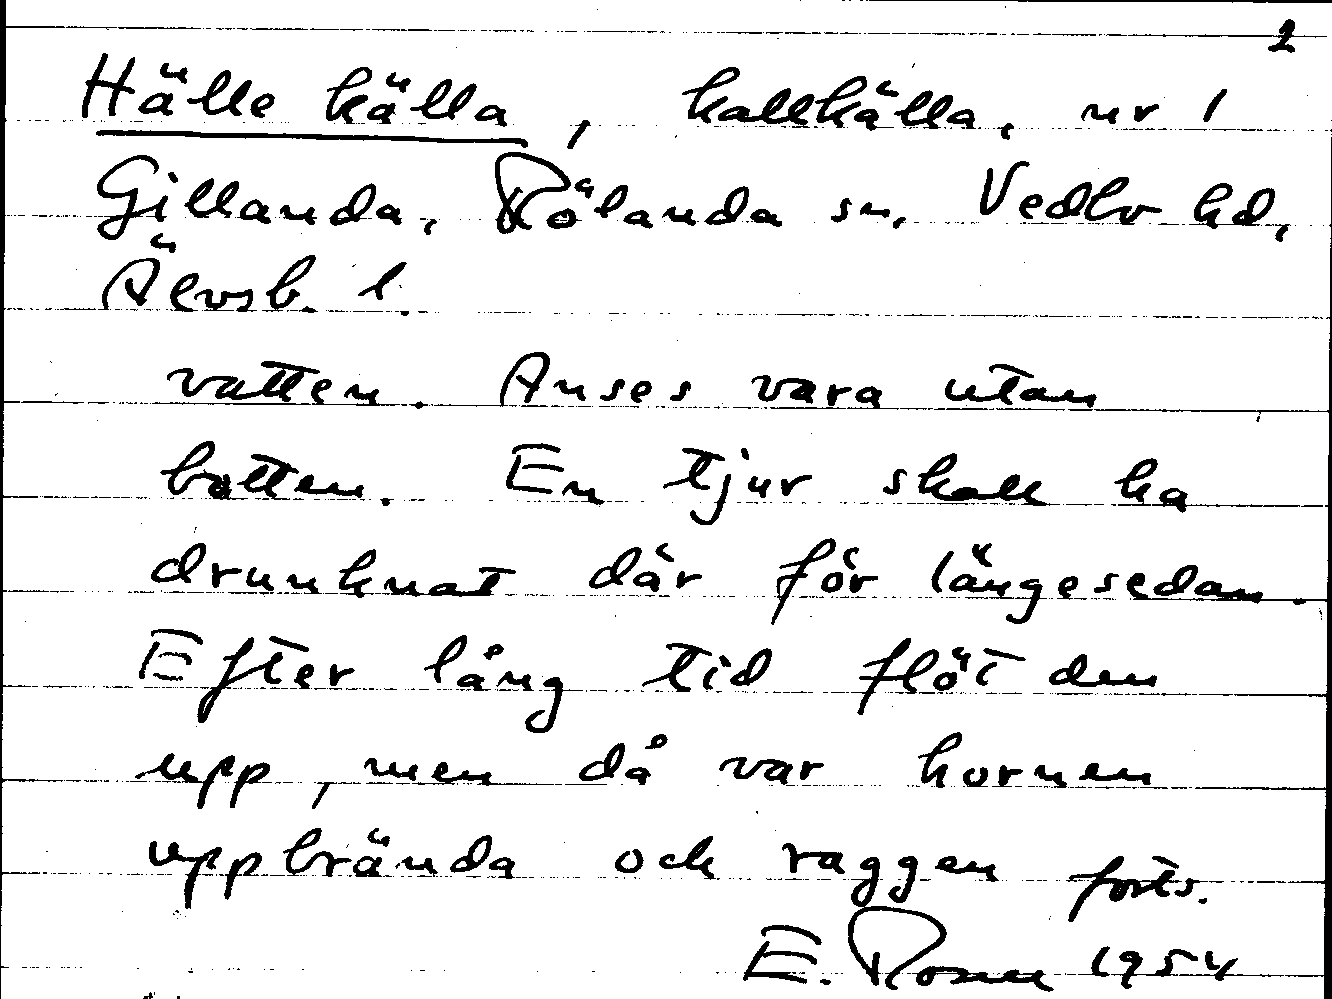 2
Hälle källa, kallkälla, nr 1
Gillanda, Rölanda sn, Vedbo hd,
Älvsb. l.
vatten. Anses vara utan
botten. En tjur skall ha
drunknat där för längesedan.
Efter lång tid flöt den
upp, men då var hornen
uppbrända och raggen forts.
E. Rosén 1954